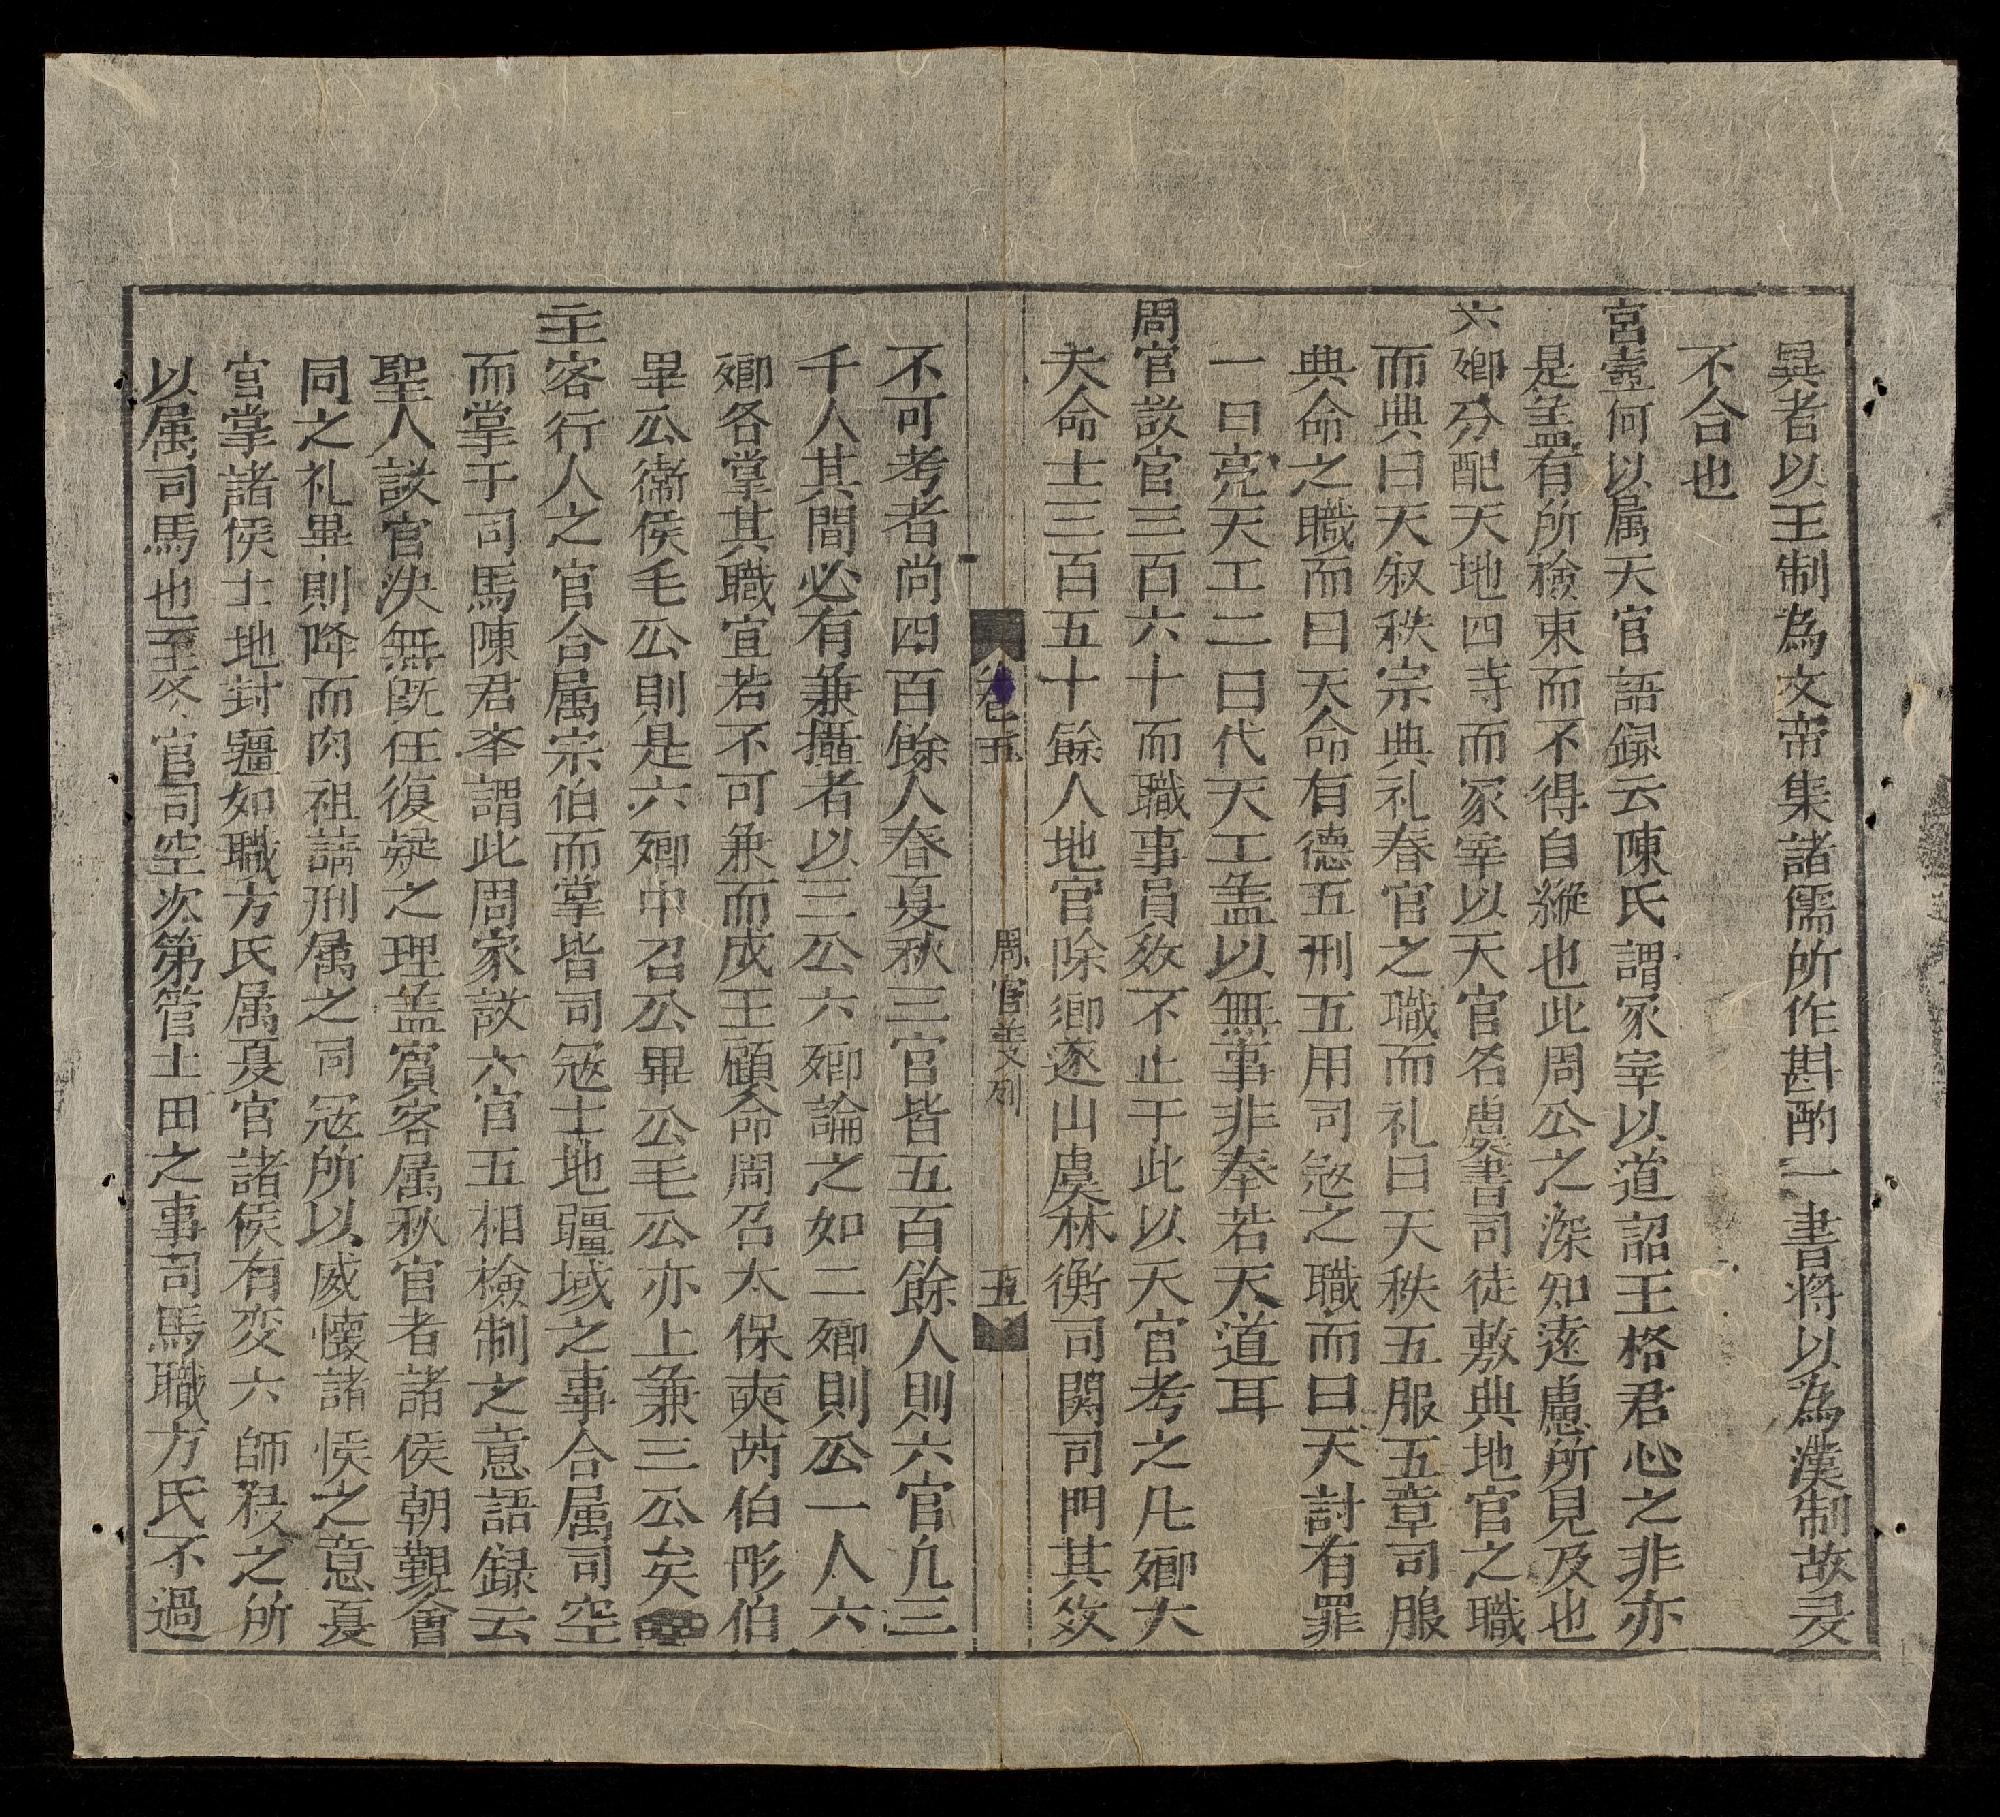 異者以王制為文帝集諸儒所作斟酌一書將以為漢制故㝵
不合也
宮壼何以属天官語録云陳氏謂冢宰以道詔王格君心之非亦
是盖有所撿束而不得自縱也此周公之深知遠慮所見及也
六卿分配天地四寺而冢宰以天官名虞書司徒敷典地官之職
而典曰天叙秩宗典礼春官之職而礼曰天秩五服五章司服
典命之職而曰天命有德五刑五用司宼之職而曰天討有罪
一曰亮天工二曰代天工盖以無事非奉若天道耳
周官設官三百六十而職事員效不止于此以天官考之凡卿大
夫命士三百五十餘人地官除鄉遂山虞林衡司関司門其效
卷五 周官義例 五
不可考者尚四百餘人春夏秋三官皆五百餘人則六官凡三
千人其間必有兼攝者以三公六卿論之如二卿則公一人六
卿各掌其職宜若不可兼而成王顧命周召太保奭芮伯彤伯
畢公衛侯毛公則是六卿中召公畢公毛公亦上兼三公矣
主客行人之官合属宗伯而掌皆司宼土地疆域之事合属司空
而掌于司馬陳君举謂此周家設六官五相檢制之意語録云
聖人設官决無既任復疑之理盖賔客属秋官者諸侯朝覲會
同之礼畢則降而肉袒請刑属之司宼所以威懷諸侯之意夏
官掌諸侯土地封疆如職方氏属夏官諸侯有变六師移之所
以属司馬也至冬官司空次第管土田之事司馬職方氏不過